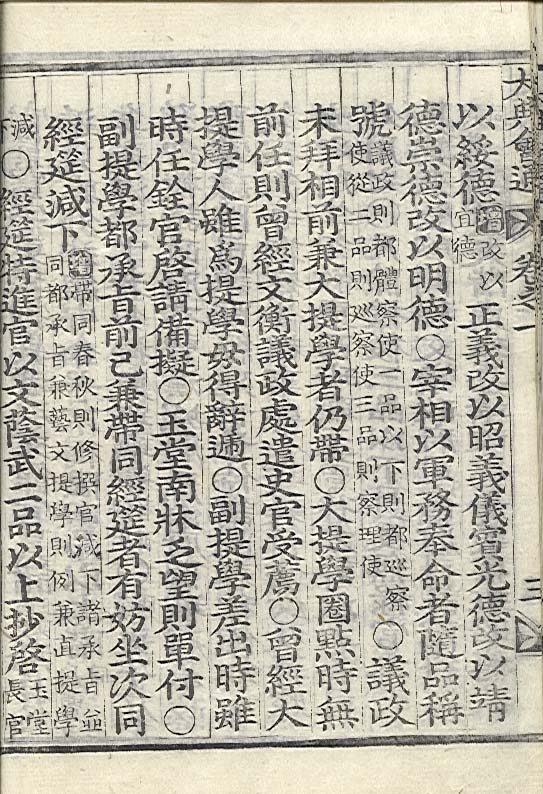 大典會通 卷之一 三
以綏德增改以宜德正義改以昭義儀賓光德改以靖
德崇德改以明德○宰相以軍務奉命者隨品稱
號議政則都體察使一品以下則都巡察使從二品則巡察使三品則察理使○議政
未拜相前兼大提學者仍帶○大提學圈點時無
前任則曾經文衡議政處遣史官受薦○曾經大
提學人雖爲提學毋得辭遞○副提學差出時雖
時任銓官啓請備擬○玉堂南牀乏望則單付○
副提學都承旨前已兼帶同經筵者有妨坐次同
經筵減下增帶同春秋則修撰官減下諸承旨並同都承旨兼藝文提學則例兼直提學
減下○經筵特進官以文蔭武二品以上抄啓玉堂長官